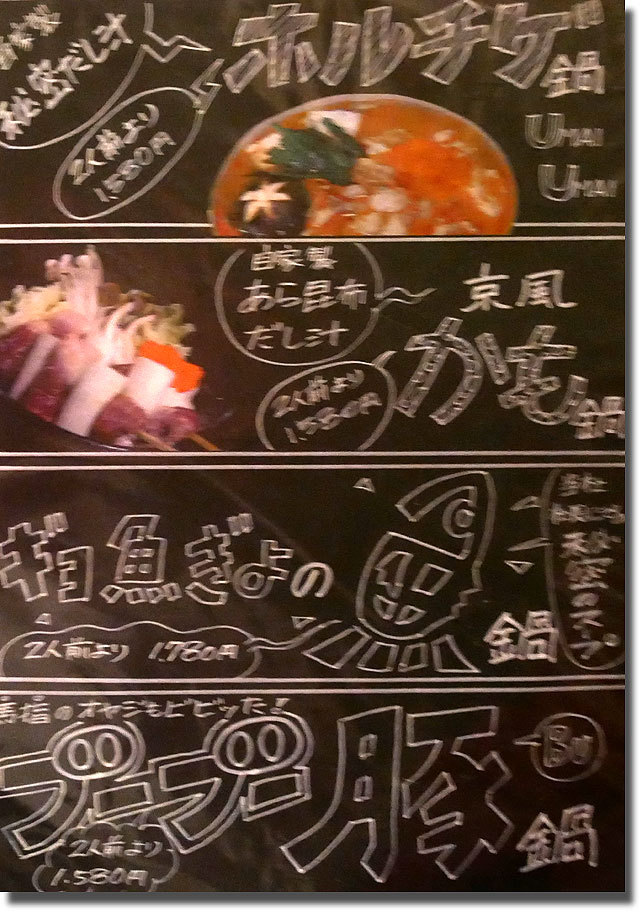 秘密だし汁
ホルチゲ鍋
2人前より
1.580円
UMAI
UMAI
自家製
あら昆布
だし汁
京風
かも鍋
2人前より
1.580円
ギョ魚ぎょの
鍋
2人前より 1.780円
のスープ
馬場のオヤジもビビッた!
ブーブー豚
BU
鍋
2人前より
1.580円